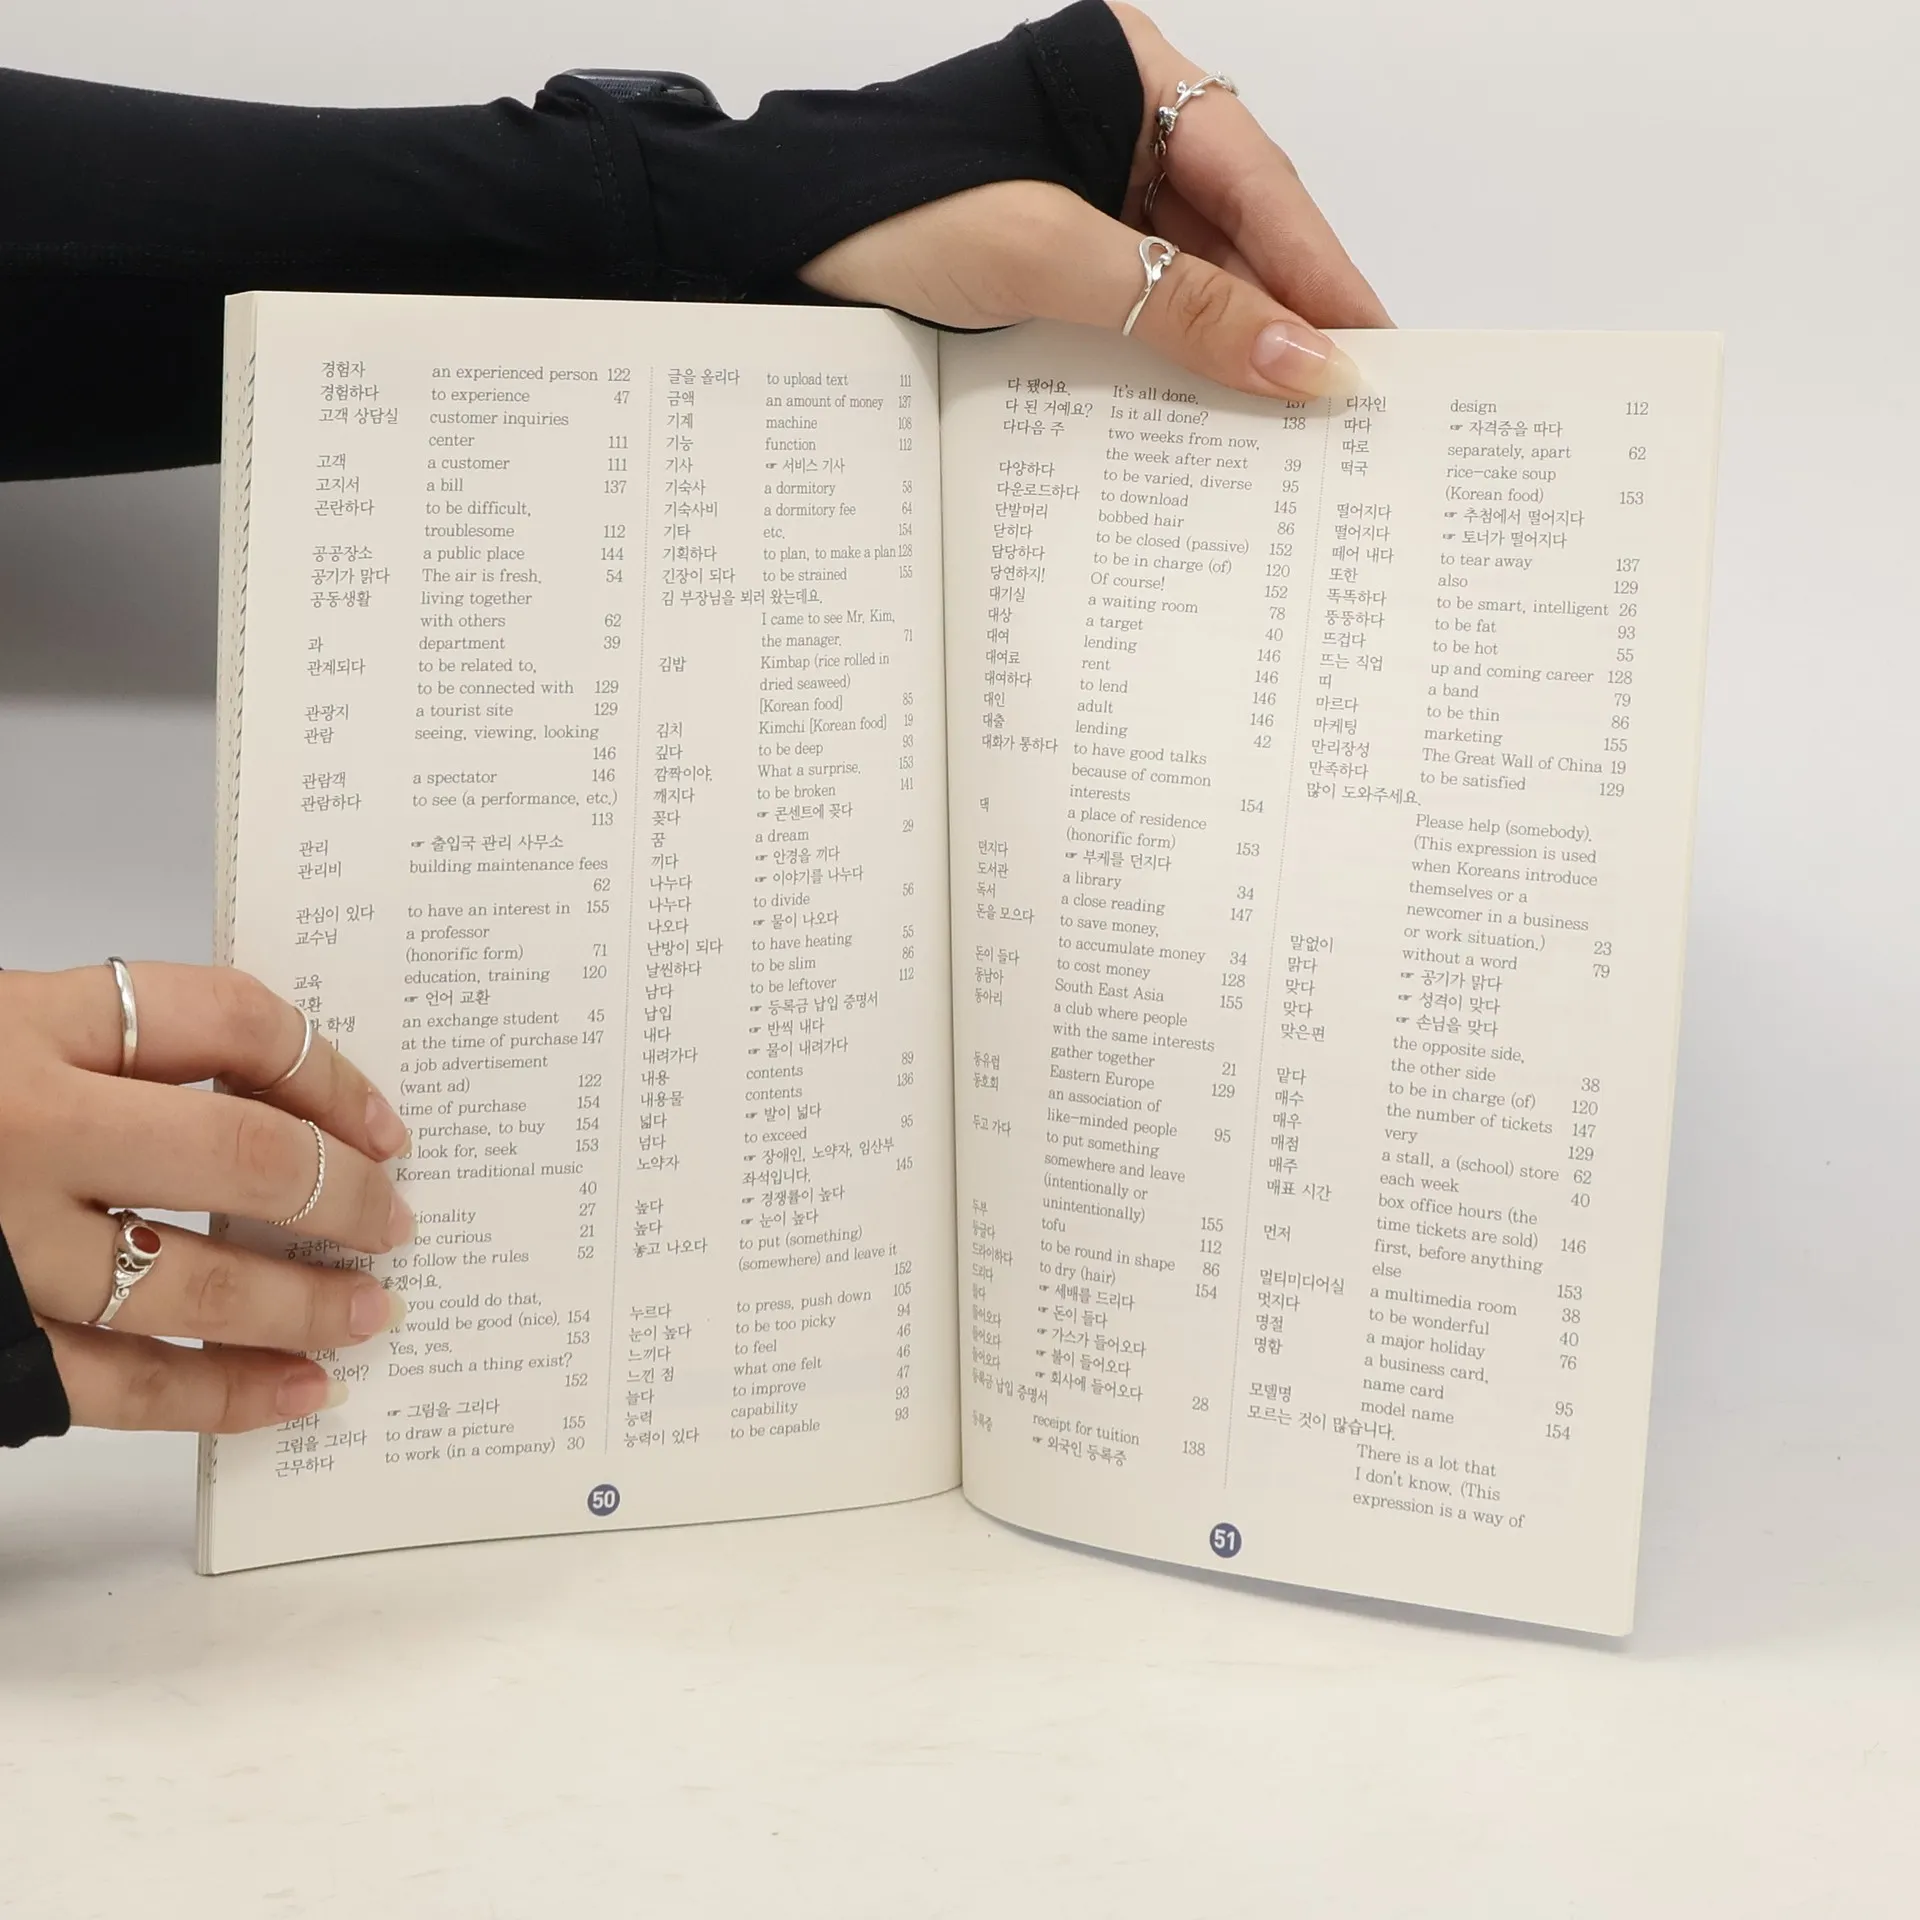 경험자 an experienced person 122
경험하다 to experience 47
고객 상담실 customer inquiries
center 111
고객 a customer 111
고지서 a bill 137
곤란하다 to be difficult,
troublesome 112
공공장소 a public place 144
공기가 맑다 The air is fresh. 54
공동생활 living together
with others 62
과 department 39
관계되다 to be related to,
to be connected with 129
관광지 a tourist site 129
관람 seeing, viewing, looking
146
관람객 a spectator 146
관람하다 to see (a performance, etc.)
113
관리 ☞ 출입국 관리 사무소
관리비 building maintenance fees
62
관심이 있다 to have an interest in 155
교수님 a professor
(honorific form) 71
교육 education, training 120
교환 ☞ 언어 교환
학생 an exchange student 45
at the time of purchase 147
a job advertisement
(want ad) 122
time of purchase 154
purchase, to buy 154
look for, seek 153
Korean traditional music
40
27
be curious 21
to follow the rules 52
좋겠어요.
you could do that,
would be good (nice). 154
Yes, yes. 153
있어? Does such a thing exist?
152
그리다 ☞ 그림을 그리다
그림을 그리다 to draw a picture 155
근무하다 to work (in a company) 30
글을 올리다 to upload text 111
금액 an amount of money 137
기계 machine 108
기능 function 112
기사 ☞ 서비스 기사
기숙사 a dormitory 58
기숙사비 a dormitory fee 64
기타 etc. 154
기획하다 to plan, to make a plan 128
긴장이 되다 to be strained 155
김 부장님을 뵈러 왔는데요.
I came to see Mr. Kim,
the manager. 71
김밥 Kimbap (rice rolled in
dried seaweed)
[Korean food] 85
김치 Kimchi [Korean food] 19
깊다 to be deep 93
깜짝이야. What a surprise. 153
깨지다 to be broken 141
꽂다 ☞ 콘센트에 꽂다
꿈 a dream 29
끼다 ☞ 안경을 끼다
나누다 ☞ 이야기를 나누다
나누다 to divide 56
나오다 ☞ 물이 나오다
난방이 되다 to have heating 55
날씬하다 to be slim 86
남다 to be leftover 112
납입 ☞ 등록금 납입 증명서
내다 ☞ 반씩 내다
내려가다 ☞ 물이 내려가다
내용 contents 89
내용물 contents 136
넓다 ☞ 발이 넓다
넘다 to exceed 95
노약자 ☞ 장애인, 노약자, 임산부
좌석입니다. 145
높다 ☞ 경쟁률이 높다
높다 ☞ 눈이 높다
놓고 나오다 to put (something)
(somewhere) and leave it
152
누르다 to press, push down 105
눈이 높다 to be too picky 94
느끼다 to feel 46
느낀 점 what one felt 46
늘다 to improve 47
능력 capability 93
능력이 있다 to be capable 93
50
다 됐어요. It's all done. 137
다 된 거예요? Is it all done? 138
다다음 주 two weeks from now,
the week after next 39
다양하다 to be varied, diverse 95
다운로드하다 to download 145
단발머리 bobbed hair 86
닫히다 to be closed (passive) 152
담당하다 to be in charge (of) 120
당연하지! Of course! 152
대기실 a waiting room 78
대상 a target 40
대여 lending 146
대여료 rent 146
대여하다 to lend 146
대인 adult 146
대출 lending 42
대화가 통하다 to have good talks
because of common
interests 154
댁 a place of residence
(honorific form) 153
던지다 ☞ 부케를 던지다
도서관 a library 34
독서 a close reading 147
돈을 모으다 to save money,
to accumulate money 34
돈이 들다 to cost money 128
동남아 South East Asia 155
동아리 a club where people
with the same interests
gather together 21
동유럽 Eastern Europe 129
동호회 an association of
like-minded people 95
두고 가다 to put something
somewhere and leave
(intentionally or
unintentionally) 155
두부 tofu 112
둥글다 to be round in shape 86
드라이하다 to dry (hair) 154
드리다 ☞ 세배를 드리다
들다 ☞ 돈이 들다
들어오다 ☞ 가스가 들어오다
들어오다 ☞ 불이 들어오다
들어오다 ☞ 회사에 들어오다
등록금 납입 증명서 28
receipt for tuition 138
등록증 ☞ 외국인 등록증
디자인 design 112
따다 ☞ 자격증을 따다
따로 separately, apart 62
떡국 rice-cake soup
(Korean food) 153
떨어지다 ☞ 추첨에서 떨어지다
떨어지다 ☞ 토너가 떨어지다
떼어 내다 to tear away 137
또한 also 129
똑똑하다 to be smart, intelligent 26
뚱뚱하다 to be fat 93
뜨겁다 to be hot 55
뜨는 직업 up and coming career 128
띠 a band 79
마르다 to be thin 86
마케팅 marketing 155
만리장성 The Great Wall of China 19
만족하다 to be satisfied 129
많이 도와주세요.
Please help (somebody).
(This expression is used
when Koreans introduce
themselves or a
newcomer in a business
or work situation.) 23
말없이 without a word 79
맑다 ☞ 공기가 맑다
맞다 ☞ 성격이 맞다
맞다 ☞ 손님을 맞다
맞은편 the opposite side,
the other side 38
맡다 to be in charge (of) 120
매수 the number of tickets 147
매우 very 129
매점 a stall, a (school) store 62
매주 each week 40
매표 시간 box office hours (the
time tickets are sold) 146
먼저 first, before anything
else 153
멀티미디어실 a multimedia room 38
멋지다 to be wonderful 40
명절 a major holiday 76
명함 a business card,
name card 95
모델명 model name 154
모르는 것이 많습니다.
There is a lot that
I don't know. (This
expression is a way of
51